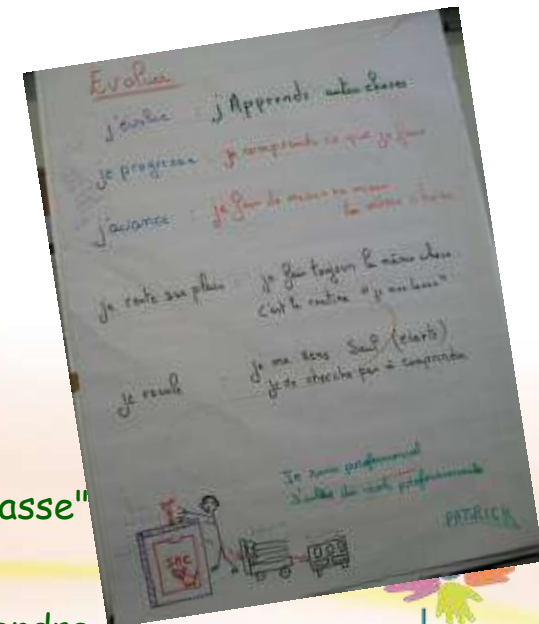 Evoluer
j'évolue : j'Apprends autre chose
je progresse je comprends ce que je fais
j'avance : je fais de mieux en mieux
la même chose
je reste sur place : je fais toujours la même chose
c'est la routine "je me lasse"
je recule je me sens seul (écarté)
je ne cherche pas à comprendre
Je suis professionnel
PATRICK
SNC
asse"
endre